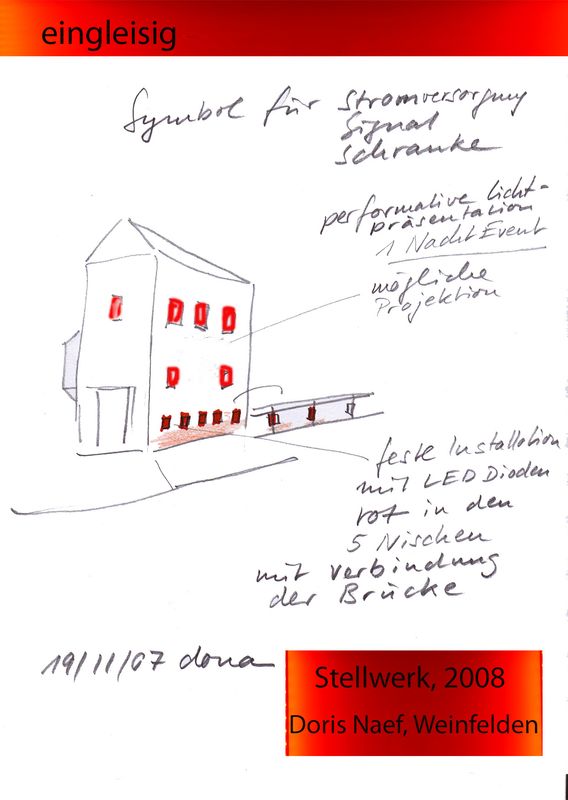 eingleisig
Symbol für Stromversorgung
Signal
Schranke
performative Licht-
präsentation
1 Nacht Event
mögliche
Projektion
feste Installation
mit LED Dioden
rot in den
5 Nischen
mit Verbindung
der Brücke
19/11/07 dona
Stellwerk, 2008
Doris Naef, Weinfelden